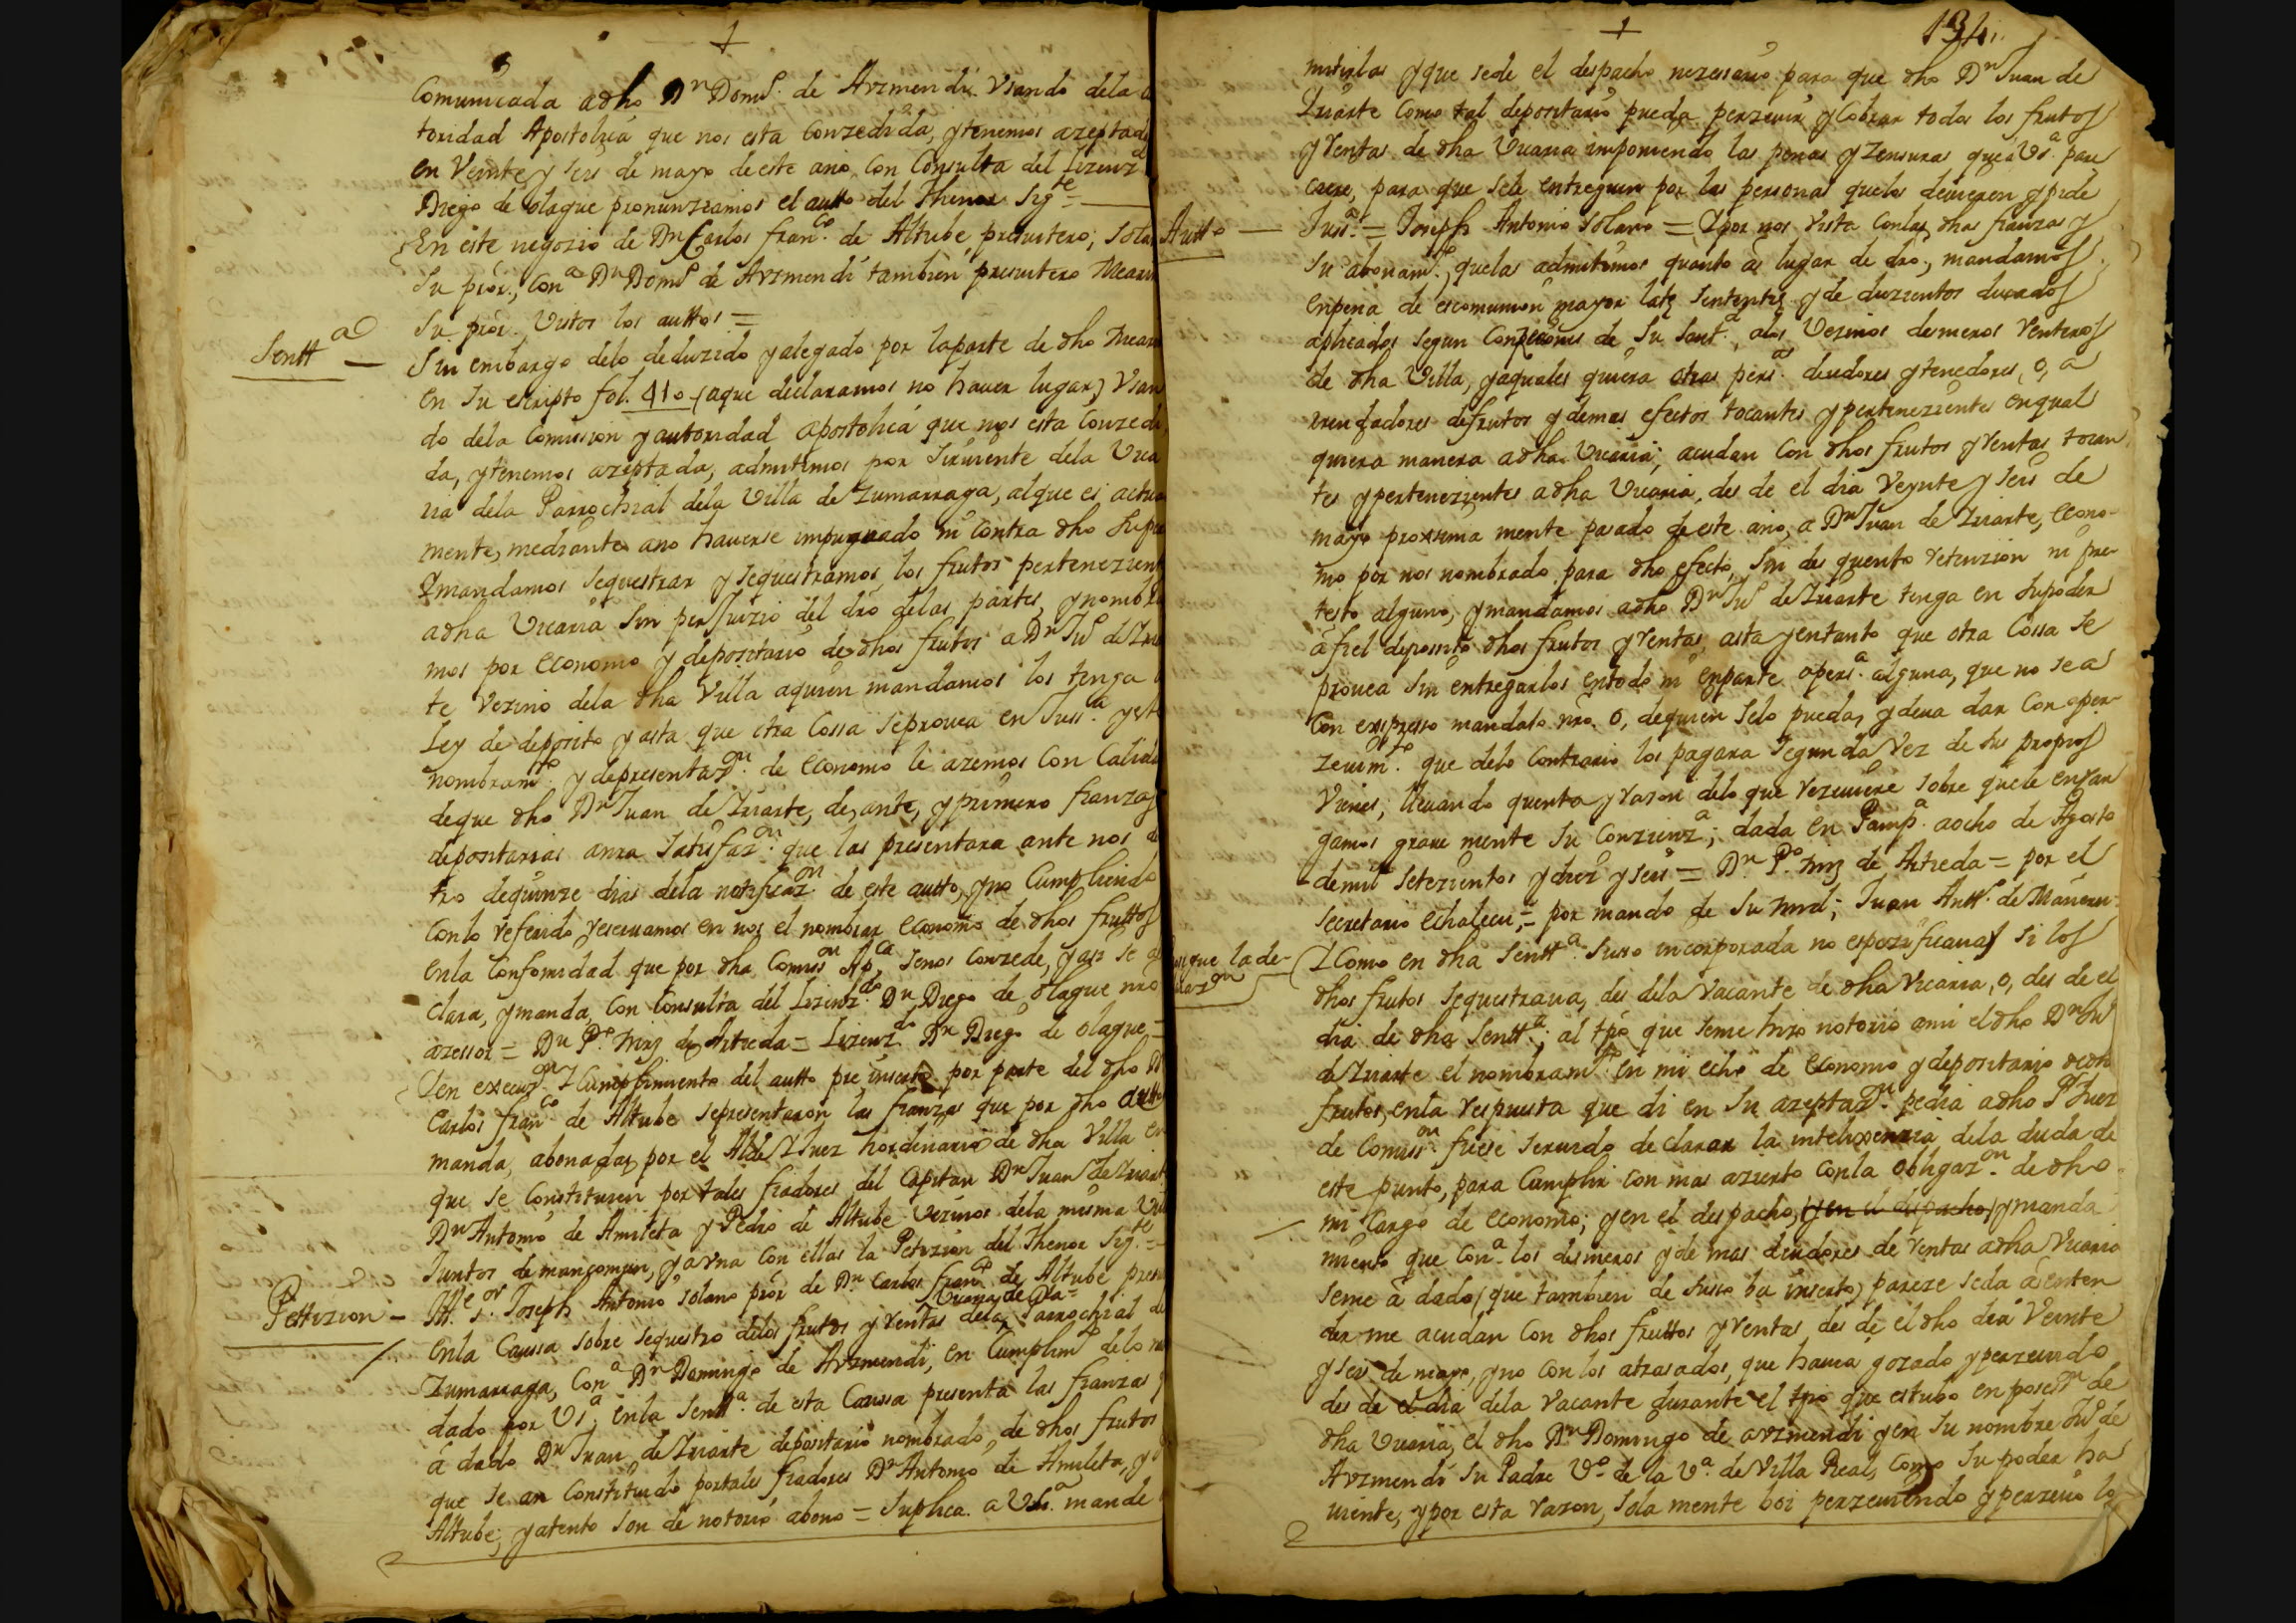 Comunicada a dho Dn Domo. de Arzmendi Vsando dela
toridad Apostolica que nos esta Conzedida, y tenemos azeptad
en Veinte y seis de mayo de este ano, Con Consulta del Lizenzdo
Diego de olague pronunziamos el autto del Thenor Sigte =
En este negozio de Dn Carlos franco. de Altube presuitero, Solan
Su pror., Cona Dn Domo de Arzmendi tambien presuitero
Su pror. Vistos los auttos =
Sentta
Sin embargo delo deduzido y alegado por la parte de dho
en Su escripto fol. 41o (a que declaramos no hauer lugar) Vsan
do dela Comission y autoridad apostolica que nos esta Conzedi
da, y tenemos azeptada, admitimos por Siruiente dela Vica
ria dela Parrochial dela Villa de Zumarraga, al que es actual
mente, mediante a no hauerse impugnado ni contra dho
Y mandamos sequestrar y sequestramos los frutos pertenezien
a dha Vicaria Sin perjuizio del dro delas partes, y nombra
mos por economo y depositario de dhos frutos a Dn Juo de Iriar
te Vezino dela dha Villa a quien mandamos los tenga
Ley de deposito y asta que otra Cossa se prouea en Jussa. y este
nombramto. y depresentazon. de economo le azemos Con Calidad
de que dho Dn Juan de Iriarte, de, ante, y primero fianzas
depositarias a nra Satisfazon. que las presentara ante nos
tro de quinze dias dela notificazon. de este autto, y no Cumpliendo
Con lo referido reseruamos en nos el nombrar economo de dhos fruttos
en la Conformidad que por dha Comisson Apca. senos conzede, y assi se
Clara, y manda, Con Consulta del Lizenzdo. Dn Diego de olague nro
azessor = Dn Po. mrz de Artieda = Lizenzdo Dn Diego de olague =
Y en execuzon. Y Cumplimiento del autto pre inserto por parte del dho
Carlos franco de Altube se presentaron las fianzas que por dho autto
manda, abonadas por el Alde Y Juez hordinario de dha Villa en
que se Constituien por tales fiadores del Capitan Dn Juan de Iriarte
Dn Antonio de Amileta y Pedro de Altube Vezinos dela misma Villa
Juntos de mancomun, y a vna con ellas la Petizion del Thenor Sigte. =
Pettizion -
Me. Sor. Joseph Antonio Solano pror de Dn Carlos franco de Altube presu
Vicaria de la =
en la Caussa sobre sequestro delos frutos y rentas dela Parrochial de
Zumarraga, Cona Dn Domingo de Arzmendi, en Cumplimto delo
dado por VSa. en la Sentta. de esta Caussa presenta las fianzas
á dado Dn Juan de Iriarte depositario nombrado, de dhos frutos
que se an Constituido por tales fiadores Dn Antonio de Amileta, y
Altube, y atento Son de notorio abono = Suplica a VSa. mande
134
mitirlas y que se de el despacho nezessario para que dho Dn Juan de
Iriarte Como tal depositario pueda perzeuir y Cobrar todos los frutos
y rentas de dha Vicaria imponiendo las penas y Zensuras que a VSa. pare
ciere, para que sele entreguen por las personas quelos deuieren y pide
Autto
Jussa. = Joseph Antonio Solano = Y por nos vista Conlas dhas fianzas y
Su abonamto., quelas admitimos quanto a lugar de dro., mandamos
en pena de escomunion mayor late sententie y de duzientos ducados
aplicados segun Conzesiones de Su Santd., alos Vezinos desmeros renteros
de dha Villa, y a quales quiera otras persas. deudores y tenedores, o, a
rrendadores de frutos y demas efectos tocantes y pertenezientes en qual
quiera manera a dha Vicaria; acudan Con dhos frutos y rentas tocan
tes y pertenezientes a dha Vicaria, des de el dia Veynte y seis de
mayo proxima mente pasado de este ano, a Dn Juan de Iriarte, econo-
mo por nos nombrado para dho efecto, Sin des quento retenzion ni pre
testo alguno, y mandamos a dho Dn Juo de Iriarte tenga en su poder
á fiel deposito dhos frutos y rentas, asta y entanto que otra Cossa se
prouea Sin entregarlos entodo ni en parte a persa. alguna, que no sea
Con expresso mandato nro. o, de quien selo pueda, y deua dar Con aper
zeuimto. que delo Contrario los pagara segunda Vez de sus propios
Vienes, lleuando quenta y razon delo que reziuiere sobre que le encar
gamos graue mente Su Conzienza; dada en Pampa. a ocho de Agosto
de mil Setezientos y diez y seis = Dn. Po. mrz de Artieda = por el
secretario echalecu, = por mando de Su mrd; Juan Antto. de Maneru
sigue la de-
clarazon
Y Como en dha Sentta. Suso incorporada no espezificauas si los
dhos frutos sequestraua, des dela Vacante de dha Vicaria, o, des de el
dia de dha Sentta.; al tpo que seme hizo notorio a mi el dho Dn Juo
de Iriarte el nombramto. en mi echo de economo y depositario de dhos
frutos, en la respuesta que di en Su azeptazon. pedia a dho Sr Juez
de Comisson fuese seruido declarar la intelixenzia dela duda de
este punto, para Cumplir con mas azierto con la obligazon. de dho
mi Cargo de economo; y en el despacho, (y en el despacho) y manda
miento que cona. los desmeros y de mas deudores de rentas a dha Vicaria
seme á dado (que tambien de suso ba inserto) pareze seda á enten
der me acudan Con dhos fruttos y rentas, des de el dho dia Veinte
y seis de mayo, y no Con los atrasados, que hauia gozado y perzeuido
des de el dia dela Vacante durante el tpo que estubo en posesson de
dha Vicaria, el dho Dn Domingo de arzmendi y en Su nombre Juo de
Arzmendi Su Padre Vo. de la Va. de Villa Real, Como Su poder ha
uiente, y por esta razon, Sola mente boi perzeuiendo y perzeuo lo